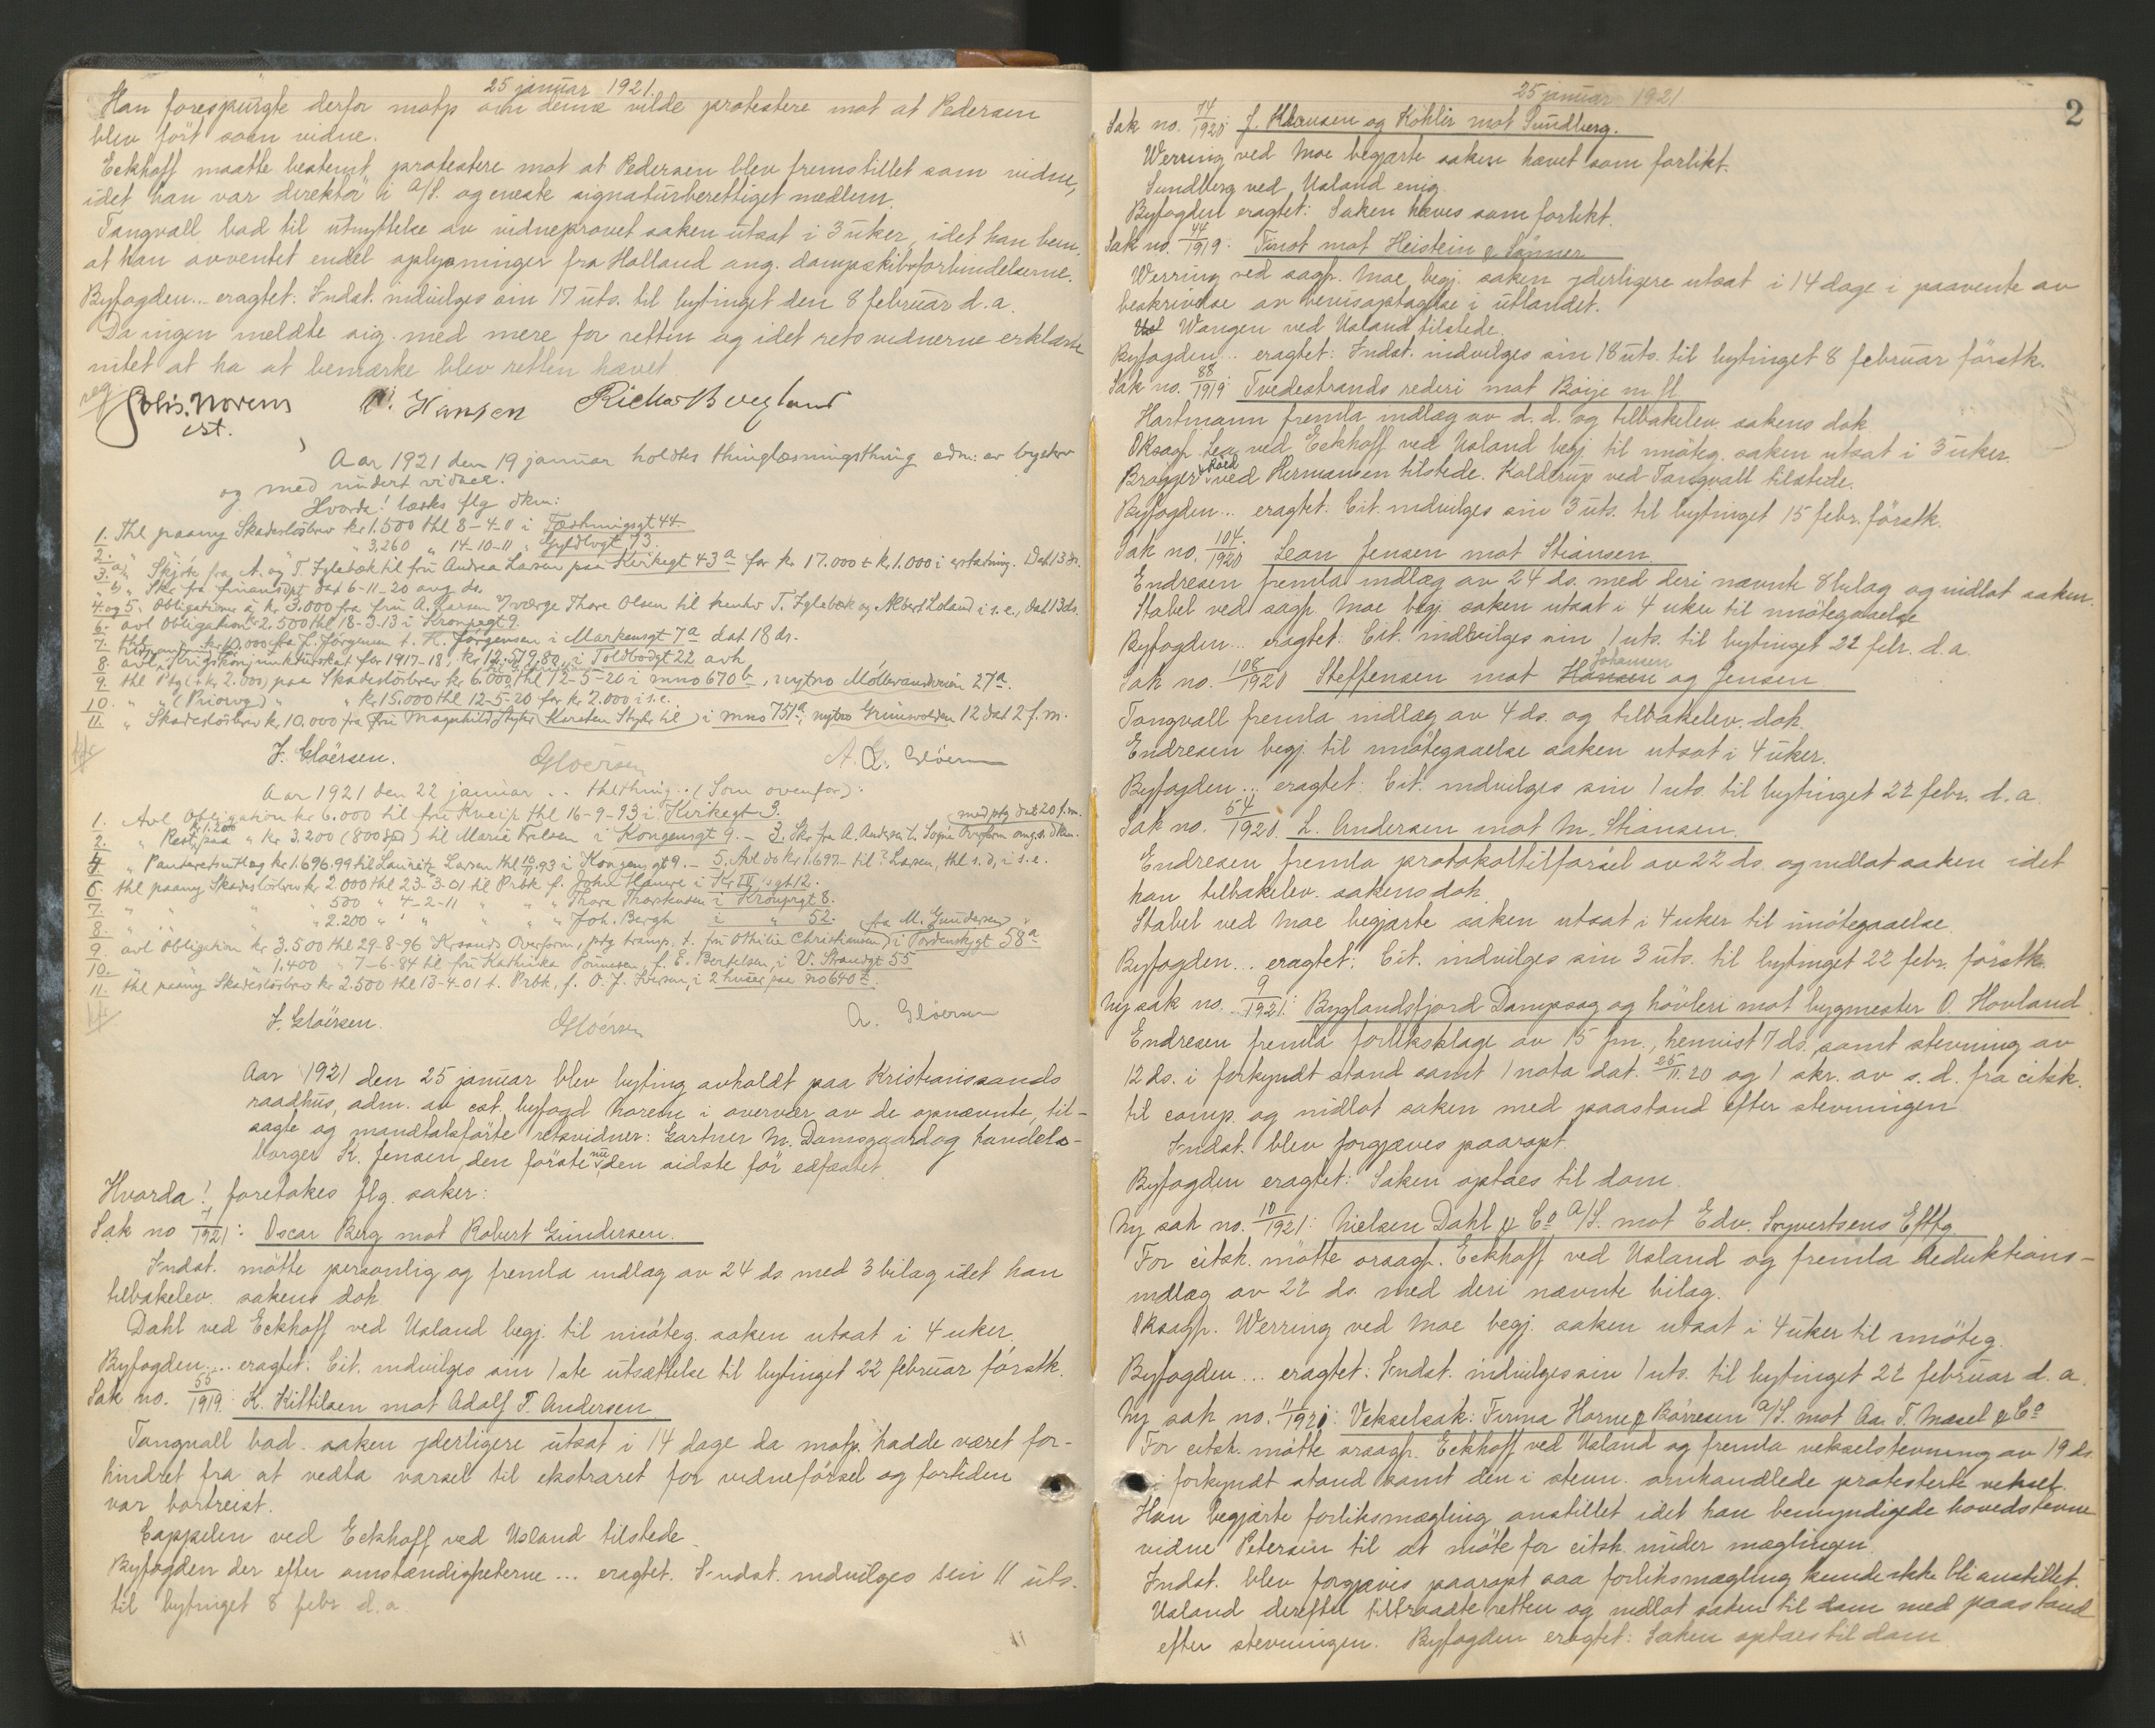 25 januar 1921.
Han forespurgte derfor motp om denne vilde protestere mot at Pedersen
blev ført som vidne.
Eckhoff maatte bestemt protestere mot at Pedersen blev fremstillet som vidne,
idet han var direktør i A/S. og eneste signaturberettiget medlem.
Tangvall bad til utnyttelse av vidneprovet saken utsat i 3 uker, idet han bem.
at han avventet endel oplysninger fra Holland ang. dampskibsforbindelserne.
Byfogden... eragtet: Indst. indvilges sin 17 uts. til bytinget den 8 februar d.a.
Da ingen meldte sig med mere for retten og idet retsvidnerne erklærte
intet at ha at bemærke blev retten hævet.
Chis. Norem
cst.
O. Hansen
Richard Bergland
Aar 1921 den 19 januar holdtes thinglæsningsthing adm: av byskr
og med undert vidner.
Hvorda! læstes flg dkm:
1. Thl paany Skadesløsbrev kr 1.500 thl 8-4-0 i Fæstningsgt 44
2. " " " 3.260 " 14-10-11 " Gyldlvgt 73.
3. a) " Skjøte fra A. og T. Fglebæk til fru Andrea Larsen paa Kirkegt 43a for kr 17.000 + kr 1.000 i erstatning. Dat 13 ds.
b) " Skr fra finansdpt dat 6-11-20 ang ds.
4. og 5. Obligationer à kr 3.000 fra fru A. Larsen m/værge Thore Olsen til kenhv T. Fglebæk og Albert Loland i s.e., dat 13 ds.
6. avl Obligation kr 2.500 thl 18-3-13 i Kronprgt 9.
7. thl kr 10.000 fra J. Jørgensen t. H. Jørgensen i Markensgt 7a dat 18 ds.
8. avl Krigskonjunkturskat for 1917-18, kr 12.579,80 i Toldbodgt 22 avh
9. thl Ptg (+ kr 2.000) paa Skadesløsbrev kr 6.000, thl 12-5-20 i mno 670b, nytno Møllevandsveien 27a.
10. " " (Priorvg) " " kr 15.000 thl 12-5-20 for kr 2.000 i s.e.
11. " Skadesløsbrev kr 10.000 fra fru Magnhild Styhr (Kersten Styhr til) i mno 751a, nytno Grimsvolden 12 dat 2 f.m.
J. Gløersen.
Gloersen
A. G. Gløersen
Aar 1921 den 22 januar .. thlthing.. (Som ovenfor):
1. Avl Obligation kr 6.000 til fru Kneip thl 16-9-93 i Kirkegt 3. med ptg dat 20 f.m.
2. " Rest kr 1.200 paa " kr 3.200 (800 spd) til Marie Frelsen i Kongensgt 9. - 3. Skr fra A. Andersen t. Sogne Overform ang. s. dkm.
4. " Panteretsutlæg kr 1.696.99 til Lauritz Larsen thl 10/11 93 i Kongensgt 9. - 5. Avl do kr 1.697.- til ? Larsen, thl s.d, i s.e.
6. thl paany Skadesløsbrev kr 2.000 thl 23-3-01 til Prbk f. John Hamre i Kr IV's gt 12.
7. " " " " 500 " 4-2-11 " " " Thora Thorstensen i Kronprgt 8.
8. " " " " 2.200 " " " " " " Joh. Bergh i " 52.
9. avl Obligation kr 3.500 thl 29-8-96 Krsands Overform, ptg transp. t. fru Othilie Christiansen (fra M. Gundersen) i Tordenskjgt 58a
10. " " " 1.400 " 7-6-84 til fru Kathinka Tønnesen, f. E. Bertelsen, i V. Strandgt 55
11. thl paany Skadesløsbrev kr 2.500 thl 13-4-01 t. Prbk, f. O. J. Iversen, i 2 huse paa no 640
J. Gløersen.
Gloersen
A. Gløersen
Aar 1921 den 25 januar blev byting avholdt paa Kristianssands
raadhus, adm. av cst. byfogd Norem i overvær av de opnævnte, til-
sagte og mandtalsførte retsvidner: Gartner M. Damsgaard og handels-
borger K. Jensen, den første nu, den sidste før edfæstet.
Hvorda! foretokes flg. saker:
Sak no 7/1921: Oscar Berg mot Robert Gundersen.
Indst. møtte personlig og fremla indlæg av 24 ds. med 3 bilag idet han
tilbakelev. sakens dok.
Dahl ved Eckhoff ved Usland begj. til imøteg. saken utsat i 4 uker.
Byfogden... eragtet: Cit. indvilges sin 1ste utsættelse til bytinget 22 februar førstk.
Sak no. 55/1919: K. Kittilsen mot Adolf T. Andersen
Tangvall bad saken yderligere utsat i 14 dage da motp. hadde været for-
hindret fra at vedta varsel til ekstraret for vidneførsel og fortiden
var bortreist.
Cappelen ved Eckhoff ved Usland tilstede.
Byfogden der efter omstændigheterne ... eragtet: Indst. indvilges sin 11 uts.
til bytinget 8 febr. d.a.
25 januar 1921
2
Sak no. 74/1920: J. Klausen og Kohler mot Sundberg.
Werring ved Moe begjærte saken hævet som forlikt.
Sundberg ved Usland enig.
Byfogden eragtet: Saken hæves som forlikt.
Sak no. 44/1919: Tinot mot Heistein & Sønner
Werring ved sagf. Moe begj. saken yderligere utsat i 14 dage i paavente av
beskrivelse av bevisoptagelse i utlandet.
Wangen ved Usland tilstede.
Byfogden... eragtet: Indst. indvilges sin 18 uts. til bytinget 8 februar førstk.
Sak no. 88/1919: Tvedestrands rederi mot Bøije m.fl.
Hartmann fremla indlæg av d.d. og tilbakelev. sakens dok.
Oksagf. Lea ved Eckhoff ved Usland begj. til imøteg. saken utsat i 3 uker.
Brøgger Røed ved Hermansen tilstede. Kolderup ved Tangvall tilstede.
Byfogden... eragtet: Cit. indvilges sin 3 uts. til bytinget 15 febr. førstk.
Sak no. 104/1920 Lean Jensen mot Stiansen
Endresen fremla indlæg av 24 ds. med deri nævnte 8 bilag og indlot saken.
Stabel ved sagf. Moe begj. saken utsat i 4 uker til imøtegaaelse
Byfogden... eragtet: Cit. indvilges sin 1 uts. til bytinget 22 febr. d.a.
Sak no. 108/1920 Steffensen mot Hansen Johansen og Jensen
Tangvall fremla indlæg av 4 ds. og tilbakelev. dok.
Endresen begj. til imøtegaaelse saken utsat i 4 uker.
Byfogden... eragtet: Cit. indvilges sin 1 uts. til bytinget 22 febr. d.a.
Sak no. 54/1920. L. Andersen mot M. Stiansen.
Endresen fremla protokoltilførsel av 22 ds. og indlot saken idet
han tilbakelev. sakens dok.
Stabel ved Moe begjærte saken utsat i 4 uker til imøtegaaelse.
Byfogden... eragtet: Cit. indvilges sin 3 uts. til bytinget 22 febr. førstk.
Ny sak no. 9/1921: Byglandsfjord Dampsag og høvleri mot bygmester O. Hovland
Endresen fremla forliksklage av 15 fm., henvist 7 ds. samt stevning av
12 ds. i forkyndt stand samt 1 nota dat. 25/11.20 og 1 skr. av s.d. fra citsk.
til comp. og indlot saken med paastand efter stevningen
Indst. blev forgjæves paaropt.
Byfogden eragtet: Saken optaes til dom.
Ny sak no. 10/1921: Nielsen Dahl & Co A/S. mot Edv. Syvertsens Eftfg.
For citsk. møtte orsagf. Eckhoff ved Usland og fremla deduktions-
indlæg av 22 ds. med deri nævnte bilag.
Oksagf. Werring ved Moe begj. saken utsat i 4 uker til imøteg.
Byfogden... eragtet: Indst. indvilges sin 1 uts. til bytinget 22 februar d.a.
Ny sak no. 11/1921: Vekselsak: Firma Horne & Børresen A/S. mot Aa. T. Mæsel & Co
For citsk. møtte orsagf. Eckhoff ved Usland og fremla vekselstevning av 19 ds.
i forkyndt stand samt den i stevn. omhandlede protesterte veksel.
Han begjærte forliksmægling anstillet idet han bemyndigede hovedstevne
vidne Petersen til at møte for citsk. under mæglingen.
Indst. blev forgjæves paaropt saa forliksmægling kunde ikke bli anstillet.
Usland derefter tiltraadte retten og indlot saken til dom med paastand
efter stevningen. Byfogden eragtet: Saken optaes til dom